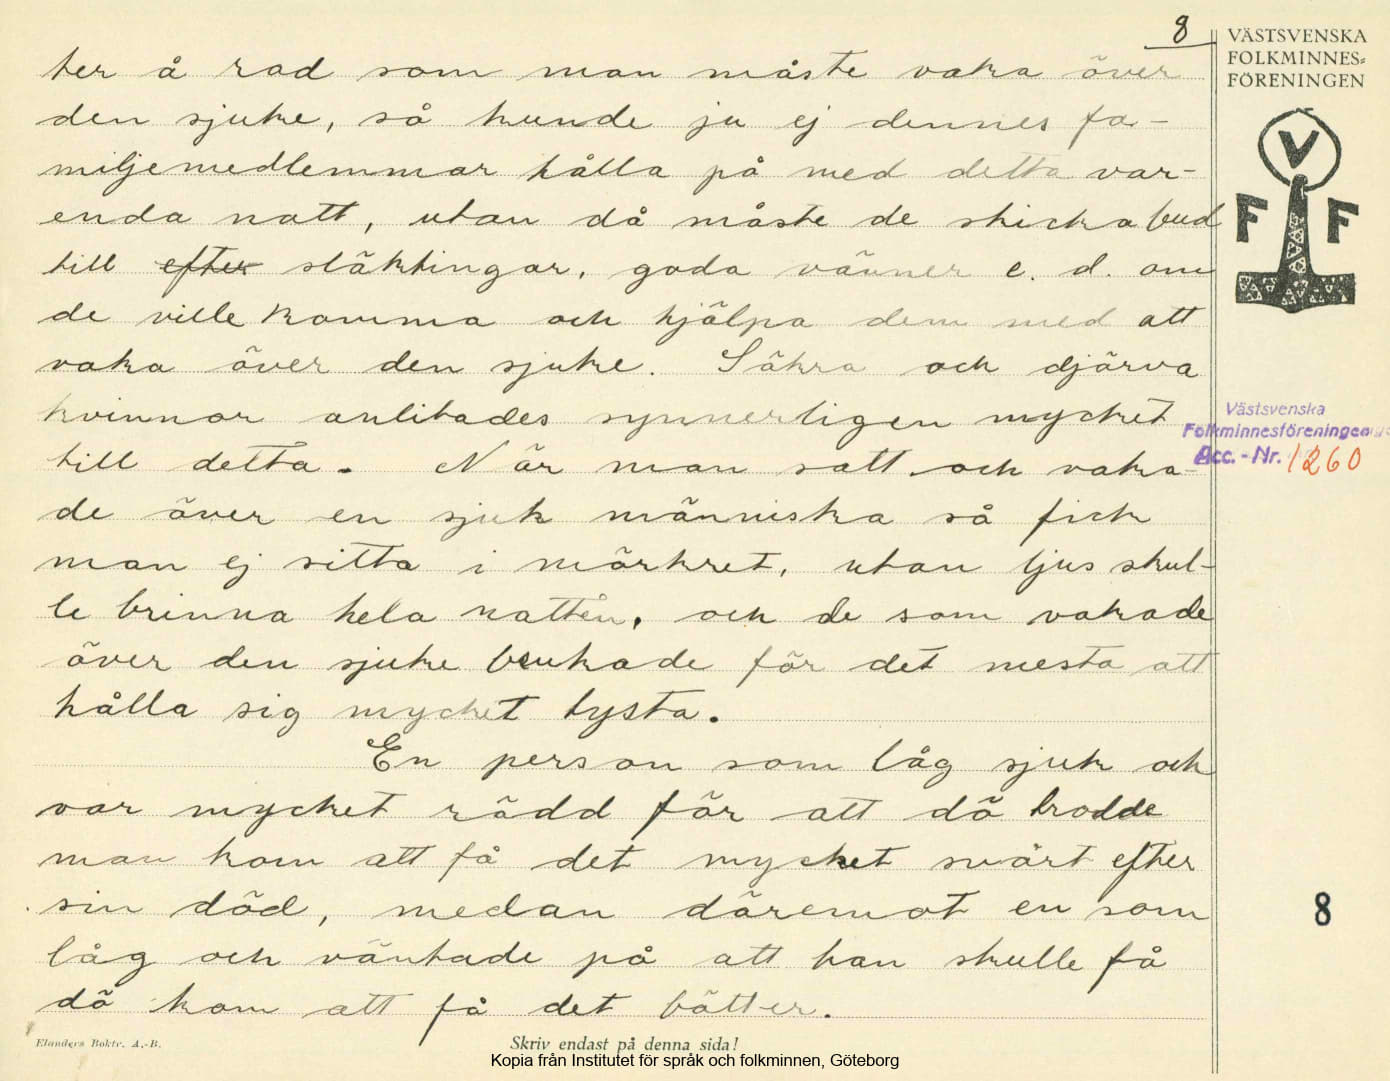 8
VÄSTSVENSKA
FOLKMINNES=
FÖRENINGEN
V
F F
ter å rad som man måste vaka över
den sjuke, så kunde ju ej dennes fa-
miljemedlemmar hålla på med detta var-
enda natt, utan då måste de skicka bud
till efter släktingar, goda vänner e. d. om
de ville komma och hjälpa dem med att
vaka över den sjuke. Säkra och djärva
kvinnor anlitades synnerligen mycket
till detta. När man satt och vaka-
de över en sjuk människa så fick
man ej sitta i mörkret, utan ljus skul-
le brinna hela natten, och de som vakade
över den sjuke brukade för det mesta att
hålla sig mycket tysta.
En person som låg sjuk och
var mycket rädd för att dö trodde
man kom att få det mycket svårt efter
sin död, medan däremot en som
låg och väntade på att han skulle få
dö kom att få det bätter.
Västsvenska
Folkminnesföreningen
Acc. - Nr. 1260
8
Elanders Boktr. A.-B.
Skriv endast på denna sida!
Kopia från Institutet för språk och folkminnen, Göteborg